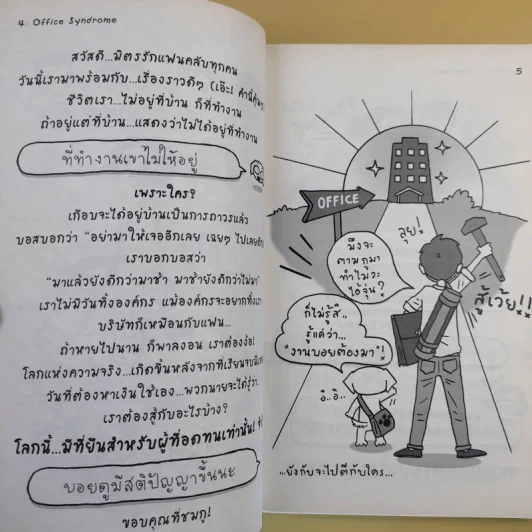 4: Office Syndrome
สวัสดี...มิตรรักแฟนคลับทุกคน
วันนี้เรามาพร้อมกับ...เรื่องราวดีๆ (เอ๊ะ!
ชีวิตเรา...ไม่อยู่ที่บ้าน ก็ที่ทำงาน
ถ้าอยู่แต่ที่บ้าน...แสดงว่าไม่ได้อยู่ที่ทำงาน
ที่ทำงานเขาไม่ให้อยู่
เพราะใคร?
เกือบจะได้อยู่บ้านเป็นการถาวรแล้ว
บอสบอกว่า “อย่ามาให้เจออีกเลย เฉยๆ ไปเลย
เราบอกบอสว่า
“มาแล้วยังดีกว่ามาช้า มาช้ายังดีกว่าไม่มา”
เราไม่มีวันทิ้งองค์กร แม้องค์กรจะอยากทิ้งเรา
บริษัทก็เหมือนกับแฟน...
ถ้าหายไปนาน ก็พาลงอน เราต้องง้อ!
โลกแห่งความจริง...เกิดขึ้นหลังจากที่เรียนจบ
วันที่ต้องหาเงินใช้เอง...พวกนายจะได้รู้ว่า...
เราต้องสู้กับอะไรบ้าง?
โลกนี้...มีที่ยืนสำหรับผู้ที่อดทนเท่านั้น!
บอยดูมีสติปัญญาขึ้นนะ
ขอบคุณที่ชมกู!
5
OFFICE
ลุย!
มึงจะ
ตามกูมา
ทำไมวะ
ไอ้จุ่น?
สู้เว้ย!!
ก็ไม่รู้สิ..
รู้แค่ว่า...
“งานบอยต้องมา”!
อิ..อิ..
...ยังกับจะไปตีกับใคร...